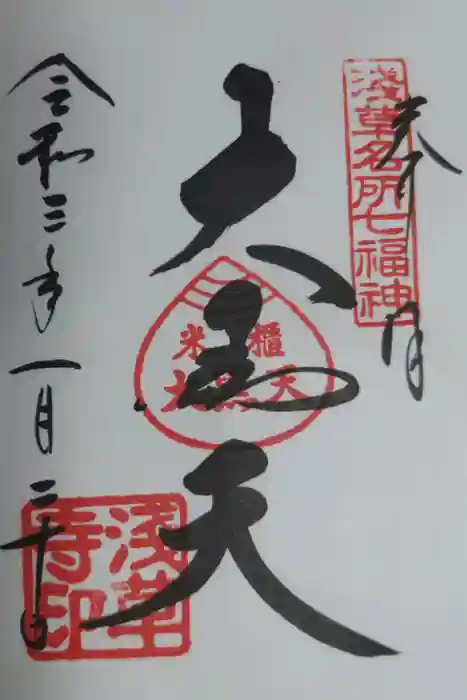 浅草名所七福神
奉拝
大黒天
米櫃
大黒天
令和三年一月二十日
浅草寺印